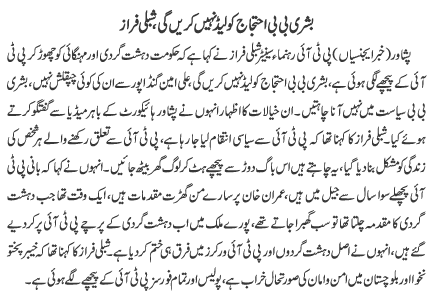 بشریٰ بی بی احتجاج کو لیڈ نہیں کریں گی، شبلی فراز
پشاور (خبر ایجنسیاں) پی ٹی آئی رہنما سینیٹر شبلی فراز نے کہا ہے کہ حکومت دہشت گردی اور مہنگائی کو چھوڑ کر پی ٹی
آئی کے پیچھے لگی ہوئی ہے، بشریٰ بی بی احتجاج کو لیڈ نہیں کریں گی، علی امین گنڈاپور سے ان کی کوئی چپقلش نہیں، بشریٰ
بی بی سیاست میں نہیں آنا چاہتیں۔ ان خیالات کا اظہار انہوں نے پشاور ہائیکورٹ کے باہر میڈیا سے گفتگو کرتے
ہوئے کیا۔ شبلی فراز کا کہنا تھا کہ پی ٹی آئی سے سیاسی انتقام لیا جا رہا ہے، پی ٹی آئی سے تعلق رکھنے والے ہر شخص کی
زندگی کو مشکل بنا دیا گیا، یہ چاہتے ہیں اس باگ دوڑ سے پیچھے ہٹ کر لوگ گھر بیٹھ جائیں۔ انہوں نے کہا کہ بانی پی ٹی
آئی پچھلے سوا سال سے جیل میں ہیں، عمران خان پر سارے من گھڑت مقدمات ہیں، ایک وقت تھا جب دہشت
گردی کا مقدمہ چلتا تھا تو سب گھبرا جاتے تھے، پورے ملک میں اب دہشت گردی کے پرچے پی ٹی آئی پر کر دیے
گئے ہیں، انہوں نے اصل دہشت گردوں اور پی ٹی آئی ورکرز میں فرق ہی ختم کر دیا ہے۔ شبلی فراز کا کہنا تھا کہ خیبر پختو
نخوا اور بلوچستان میں امن و امان کی صورتحال خراب ہے، پولیس اور تمام فورسز پی ٹی آئی کے پیچھے لگے ہوئی ہے۔